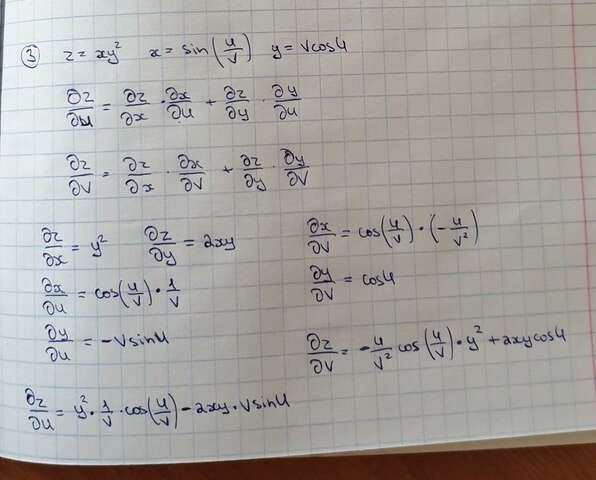 ③ z = xy² x = sin(u/v) y = vcosu
∂z/∂u = ∂z/∂x · ∂x/∂u + ∂z/∂y · ∂y/∂u
∂z/∂v = ∂z/∂x · ∂x/∂v + ∂z/∂y · ∂y/∂v
∂z/∂x = y² ∂z/∂y = 2xy
∂x/∂u = cos(u/v) · 1/v
∂y/∂u = -vsinu
∂x/∂v = cos(u/v) · (-u/v²)
∂y/∂v = cosu
∂z/∂v = -u/v² cos(u/v) · y² + 2xycosu
∂z/∂u = y² · 1/v · cos(u/v) - 2xy · vsinu